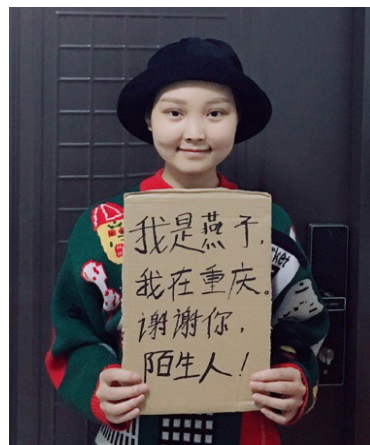 我是燕子,
我在重庆。
谢谢你,
陌生人!